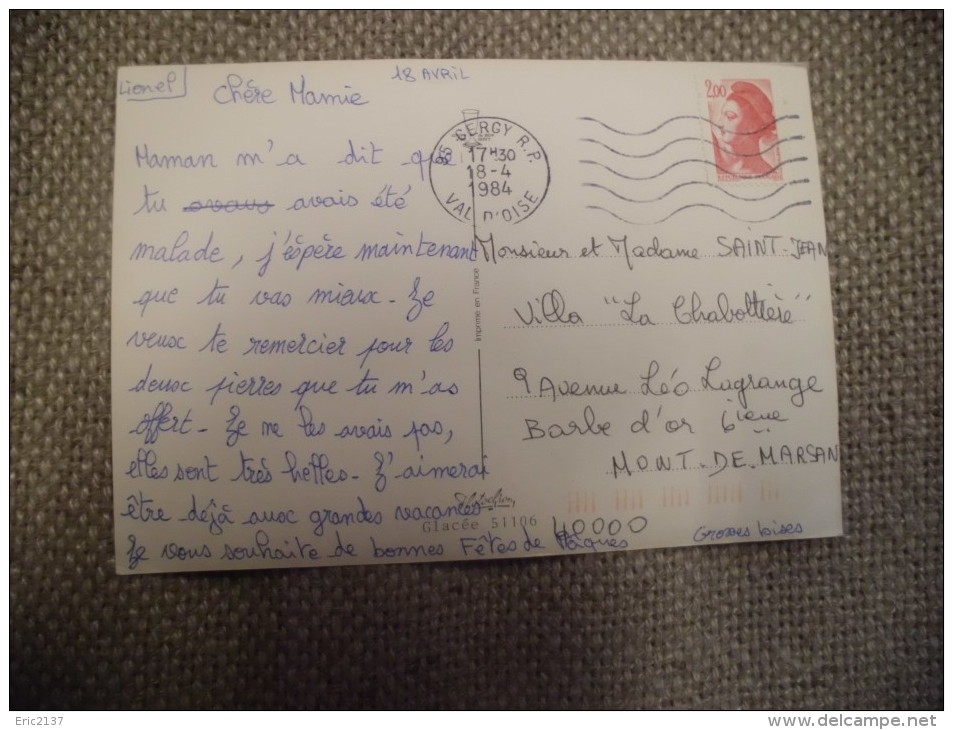 Lionel
18 AVRIL
Chère Mamie
Maman m'a dit que
tu avais avais été
malade, j'éspère maintenant
que tu vas mieux - Je
veux te remercier pour les
deux pierres que tu m'as
offert - Je ne les avais pas,
elles sont très belles - J'aimerai
être déjà aux grandes vacances -
Je vous souhaite de bonnes Fêtes de Pâques
Grosses bises
2,00
95 CERGY R.P.
17H30
18-4
1984
VAL D'OISE
Imprimé en France
Monsieur et Madame SAINT-JEAN
Villa "La Chabottière"
9 Avenue Léo Lagrange
Barbe d'or 6ième
MONT-DE-MARSAN
40000
Glacée 51106
Eric2137
delcampe.net